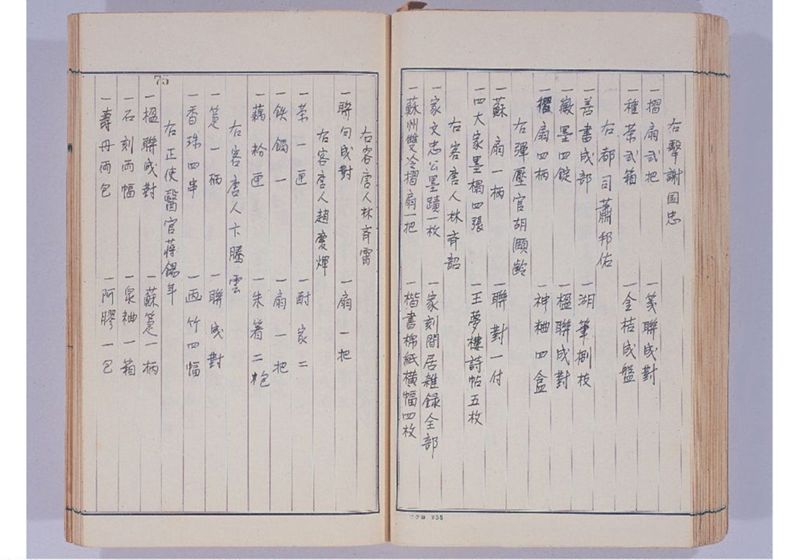 右擊謝国忠
一摺扇弐把 一箋聯成對
一種茶弐箱 一金桔成盤
右都司蕭邦佑
一善書成部 一湖筆捌枝
一徽墨四錠 一楹聯成對
一摺扇四柄 一神粬四盒
右彈壓官胡顕齢
一蘇扇一柄 一聯對一付
一四大家墨榻四張 一王夢樓詩帖五枚
右客唐人林斉韶
一家文忠公墨蹟一枚 一家刻閒居雜録全部
一蘇州雙冷摺扇一把 一楷書棉紙横幅四枚
右客唐人林斉霄
一聯句成對 一扇一把
右客唐人趙慶煇
一茶一匣 一耐家二
一鉄鐲一 一扇一把
一藕粉匣 一朱箸二
右客唐人卞騰雲
一箑一柄 一聯成對
一香珠四串 一西竹四幅
右正使醫官蒋錫年
一楹聯成對 一蘇箑一柄
一石刻両幅 一泉粬一箱
一壽丹両包 一阿膠一包
75